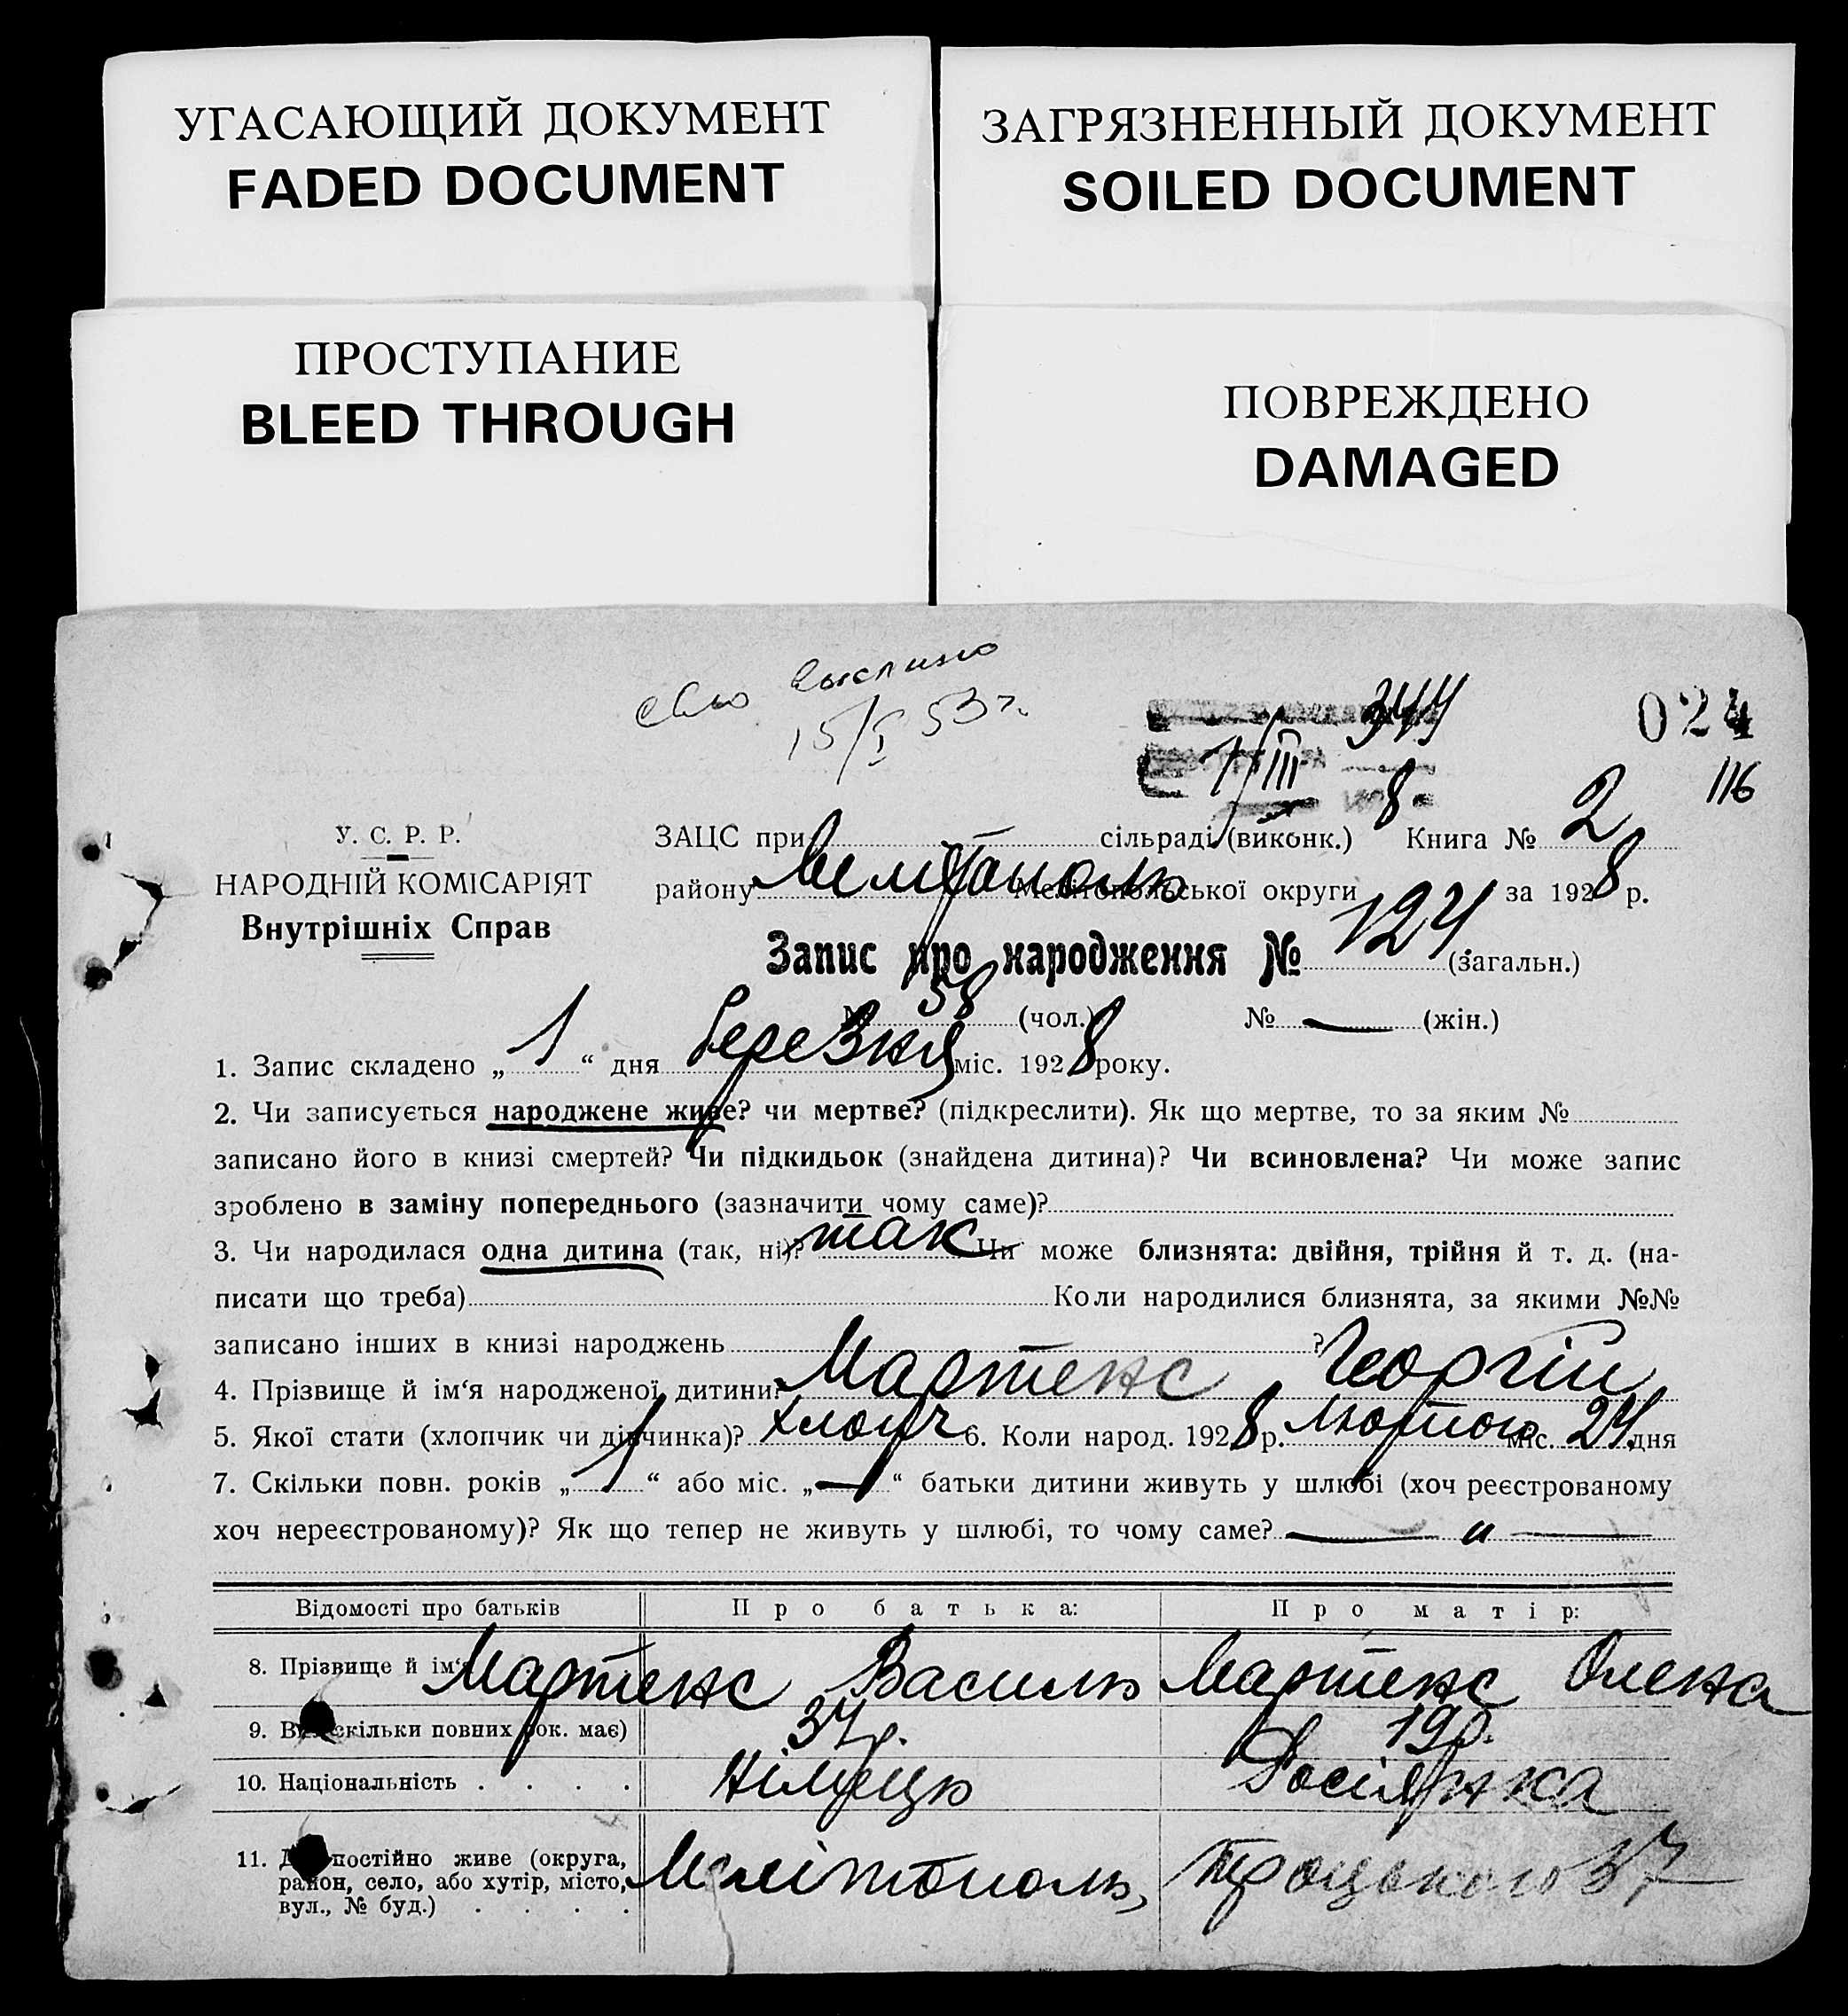 УГАСАЮЩИЙ ДОКУМЕНТ
FADED DOCUMENT
ЗАГРЯЗНЕННЫЙ ДОКУМЕНТ
SOILED DOCUMENT
ПРОСТУПАНИЕ
BLEED THROUGH
ПОВРЕЖДЕНО
DAMAGED
15/I 53 г.
344
024
1/III 8
116
У. С. Р. Р.
НАРОДНІЙ КОМІСАРІЯТ
Внутрішніх Справ
ЗАЦС при сільраді (виконк.) Книга № 2
району Мелітополь Мелітопольської округи за 1928 р.
Запис про народження № 124 (загальн.)
№ 58 (чол.) № — (жін.)
1. Запис складено „ 1 “ дня березня міс. 1928 року.
2. Чи записується народжене живе? чи мертве? (підкреслити). Як що мертве, то за яким №
записано його в книзі смертей? Чи підкидьок (знайдена дитина)? Чи всиновлена? Чи може запис
зроблено в заміну попереднього (зазначити чому саме)?
3. Чи народилася одна дитина (так, ні)? так Чи може близнята: двійня, трійня й т. д. (на-
писати що треба) Коли народилися близнята, за якими №№
записано інших в книзі народжень ?
4. Прізвище й ім‘я народженої дитини? Мартенс Георгій
5. Якої стати (хлопчик чи дівчинка)? хлопч 6. Коли народ. 1928 р. лютого міс. 24 дня
7. Скільки повн. років „ 1 “ або міс. „ — “ батьки дитини живуть у шлюбі (хоч реєстрованому
хоч нереєстрованому)? Як що тепер не живуть у шлюбі, то чому саме? — „ —
Відомості про батьків Про батька: Про матір:
8. Прізвище й ім‘я Мартенс Василь Мартенс Олена
9. Вік скільки повних рок. має) 37 р. 19 р.
10. Національність . . . . Німець Росіянка
11. Де постійно живе (округа, район, село, або хутір, місто, вул., № буд.) . . . . Мелітополь, Троцького 37